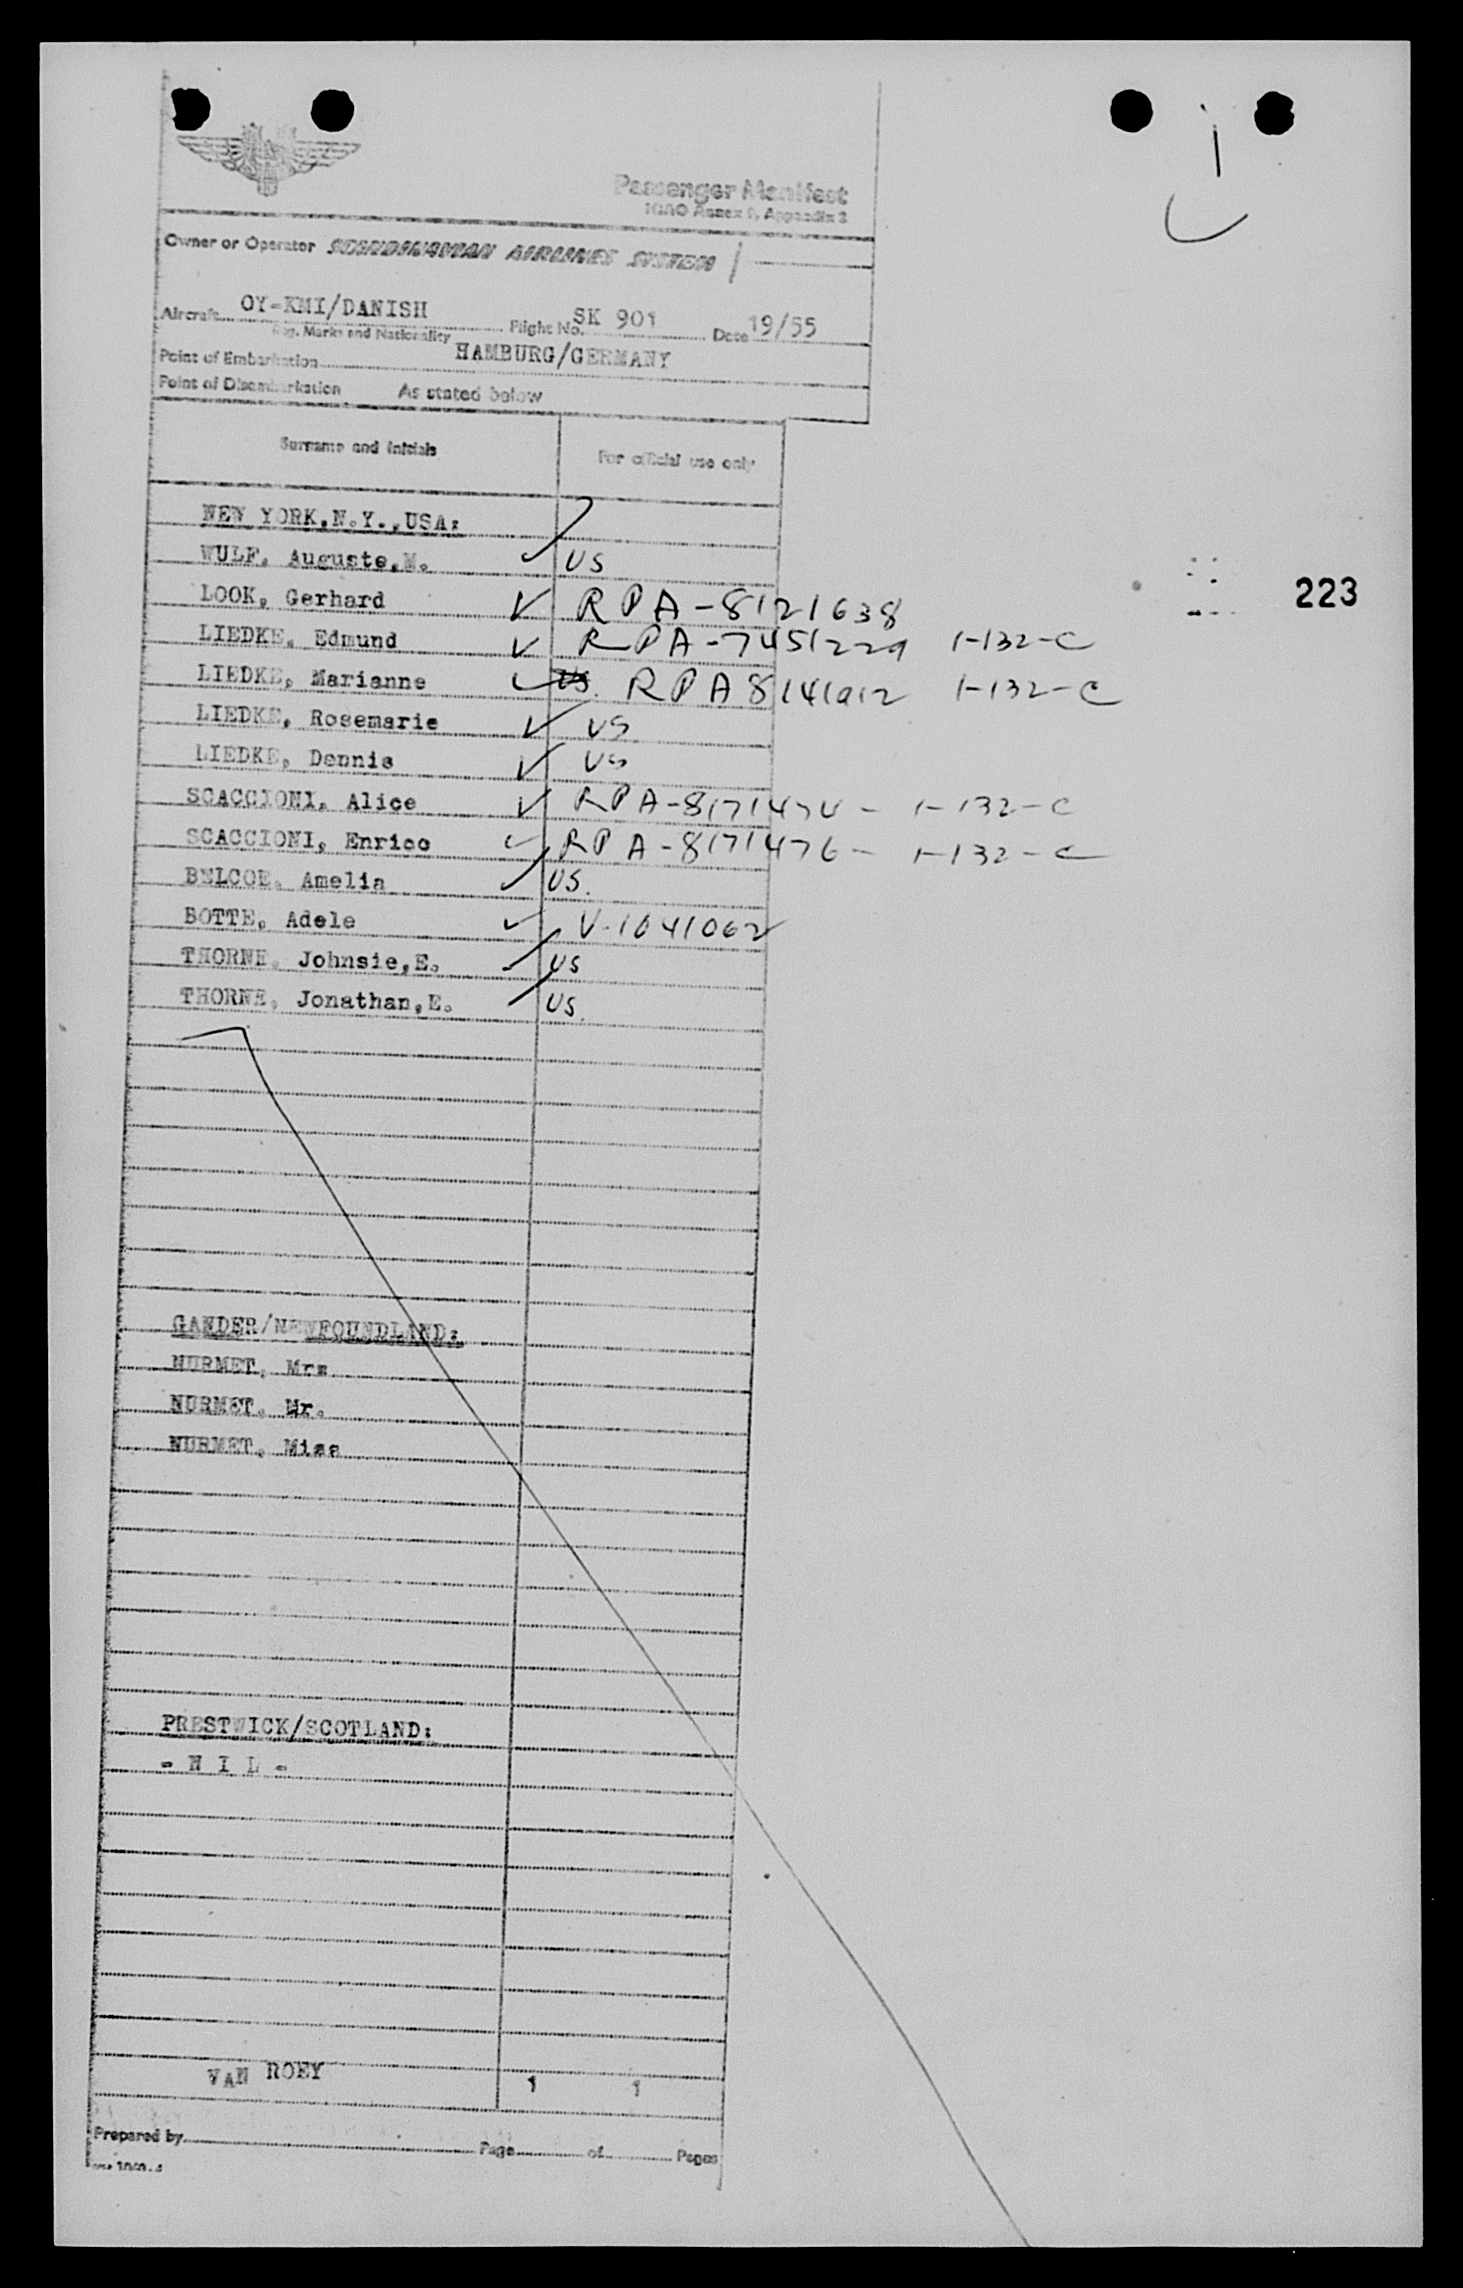 i
Passenger Manifest
ICAO Annex 9, Appendix 3
Owner or Operator SCANDINAVIAN AIRLINES SYSTEM
Aircraft OY-KMI/DANISH Flight No. SK 901 Date 19/55
Reg. Marks and Nationality
Point of Embarkation HAMBURG/GERMANY
Point of Disembarkation As stated below
Surname and Initials For official use only
NEW YORK,N.Y.,USA:
WULF, Auguste,M. US
LOOK, Gerhard RPA-8121638
223
LIEDKE, Edmund RPA-7451229 1-132-C
LIEDKE, Marianne US. RPA 8141912 1-132-C
LIEDKE, Rosemarie US
LIEDKE, Dennis US
SCACCIONI, Alice RPA-8171474 - 1-132-C
SCACCIONI, Enrico RPA-8171476 - 1-132-C
BELCOE, Amelia US.
BOTTE, Adele V-1641062
THORNE, Johnsie,E. US
THORNE, Jonathan,E. US.
GANDER/NEWFOUNDLAND:
NURMET, Mrs
NURMET, Mr.
NURMET, Miss
PRESTWICK/SCOTLAND:
- N I L -
VAN ROEY 1 1
Prepared by Page of Pages